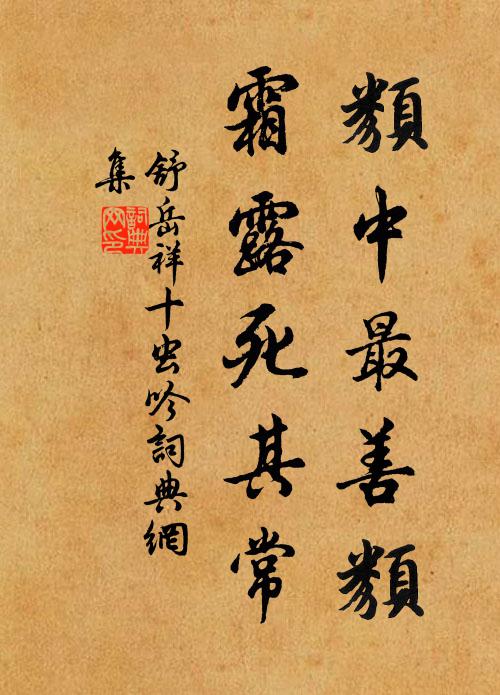 類中最善類
霜露死其常
舒岳祥十虫吟詞典網
集
詞典网印